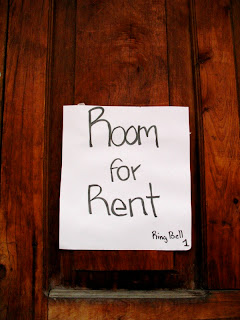 Room
for
Rent
Ring Bell
1